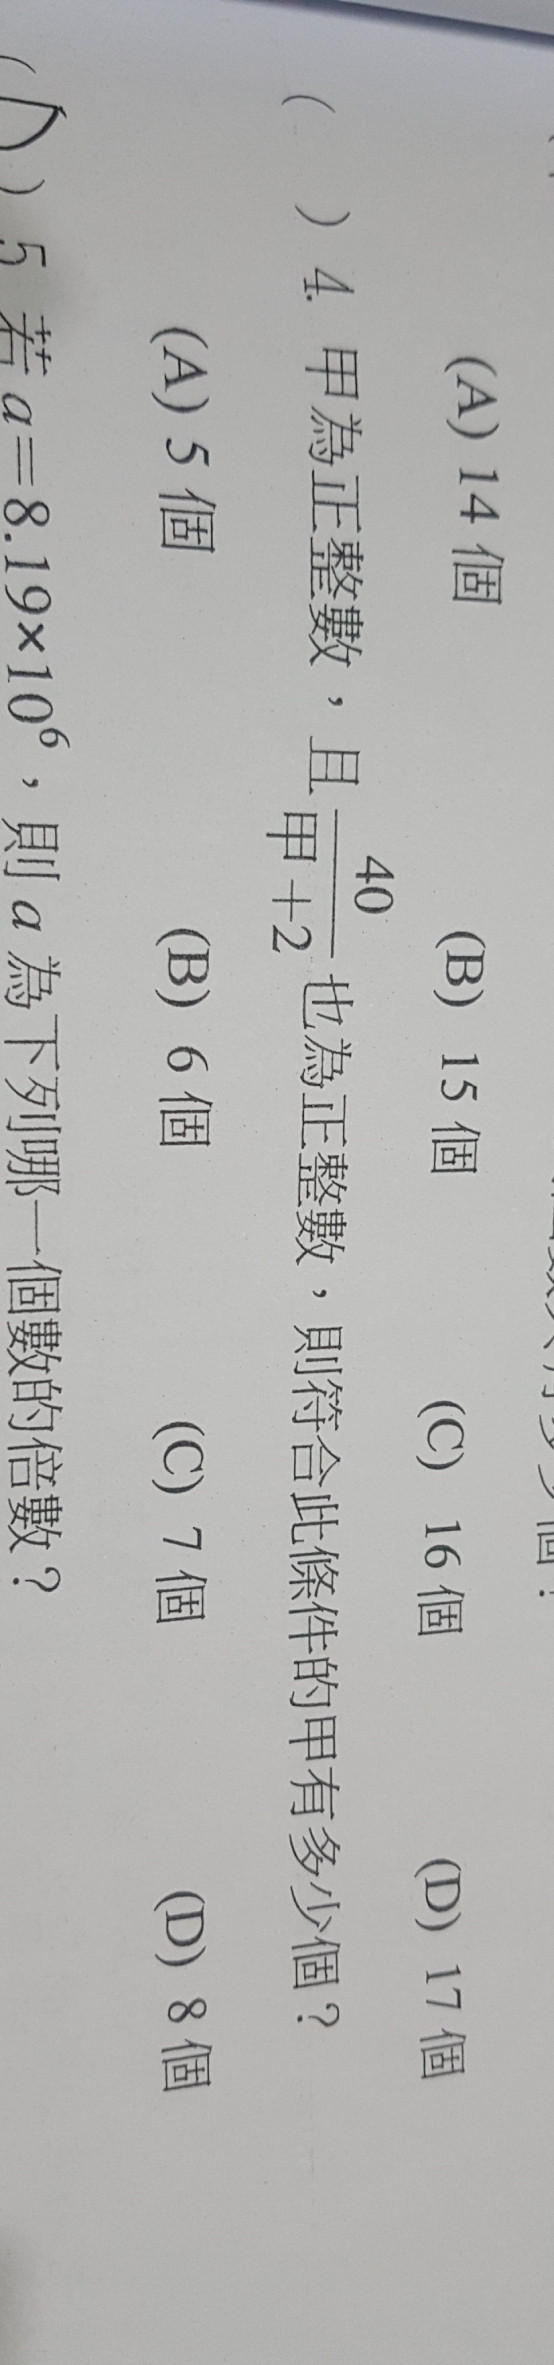 (A) 14 個 (B) 15 個 (C) 16 個 (D) 17 個
( ) 4. 甲為正整數,且 40/甲+2 也為正整數,則符合此條件的甲有多少個?
(A) 5 個 (B) 6 個 (C) 7 個 (D) 8 個
(D) 5. 若 a=8.19×10⁶,則 a 為下列哪一個數的倍數?